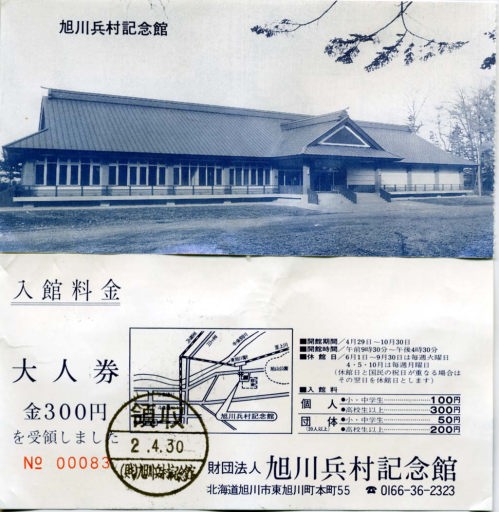 旭川兵村記念館
入館料金
大人券
金300円
を受領しました
№ 00083
領収
2.4.30
(財)旭川兵村記念館
旭川兵村記念館
■開館期間／4月29日〜10月30日
■開館時間／午前9時30分〜午後4時30分
■休館日／6月1日〜9月30日は毎週火曜日
4・5・10月は毎週月曜日
(休館日と国民の祝日が重なる場合は
その翌日を休館日とします)
■入館料
個人 ●小・中学生 100円
●高校生以上 300円
団体 ●小・中学生 50円
(20人以上) ●高校生以上 200円
財団法人 旭川兵村記念館
北海道旭川市東旭川町本町55 ☎0166-36-2323